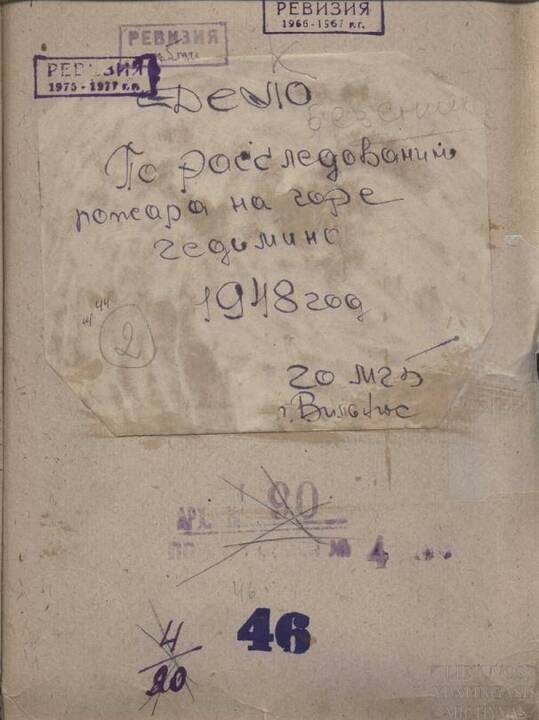 РЕВИЗИЯ
1966-1967 г.г.
РЕВИЗИЯ
РЕВИЗИЯ
1975-1977 г.г.
Дело
По расследованию
пожара на горе
гедимина
1948 год
2
ГО МГБ
г. Вильнюс
90
АРХ. №
№ 4
46
46
4
20